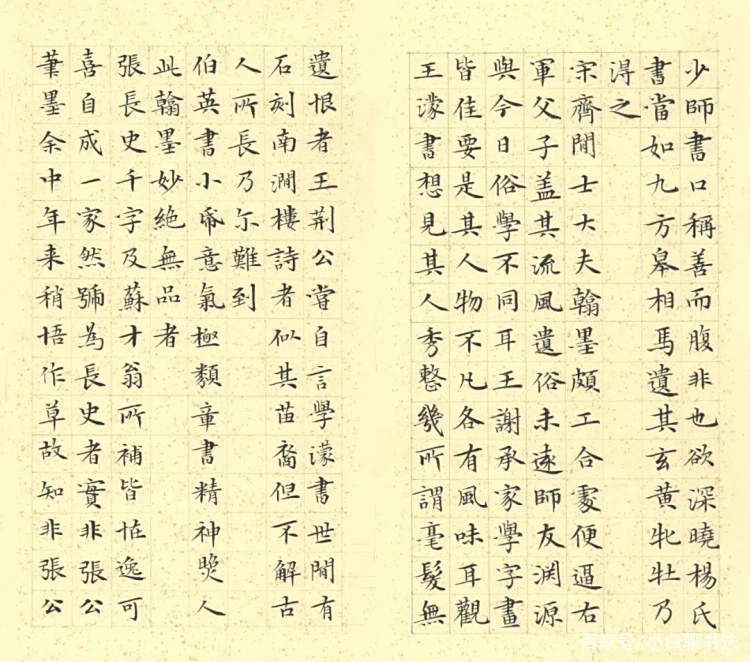 少師書口稱善而腹非也欲深曉楊氏
書當如九方皋相馬遺其玄黃牝牡乃
淂之
宋齊閒士大夫翰墨頗工合處便逼右
軍父子盖其流風遺俗未遠師友渊源
與今日俗學不同耳王謝承家學字畫
皆佳要是其人物不凡各有風味耳觀
王濛書想見其人秀整幾所謂毫髮無
遺恨者王荆公嘗自言學濛書世閒有
石刻南澗樓詩者似其苗裔但不解古
人所長乃尓難到
伯英書小帋意氣極類章書精神煚人
此翰墨妙絶無品者
張長史千字及蘇才翁所補皆怪逸可
喜自成一家然號為長史者實非張公
筆墨余中年来稍悟作草故知非張公
百家号·小白聊书法